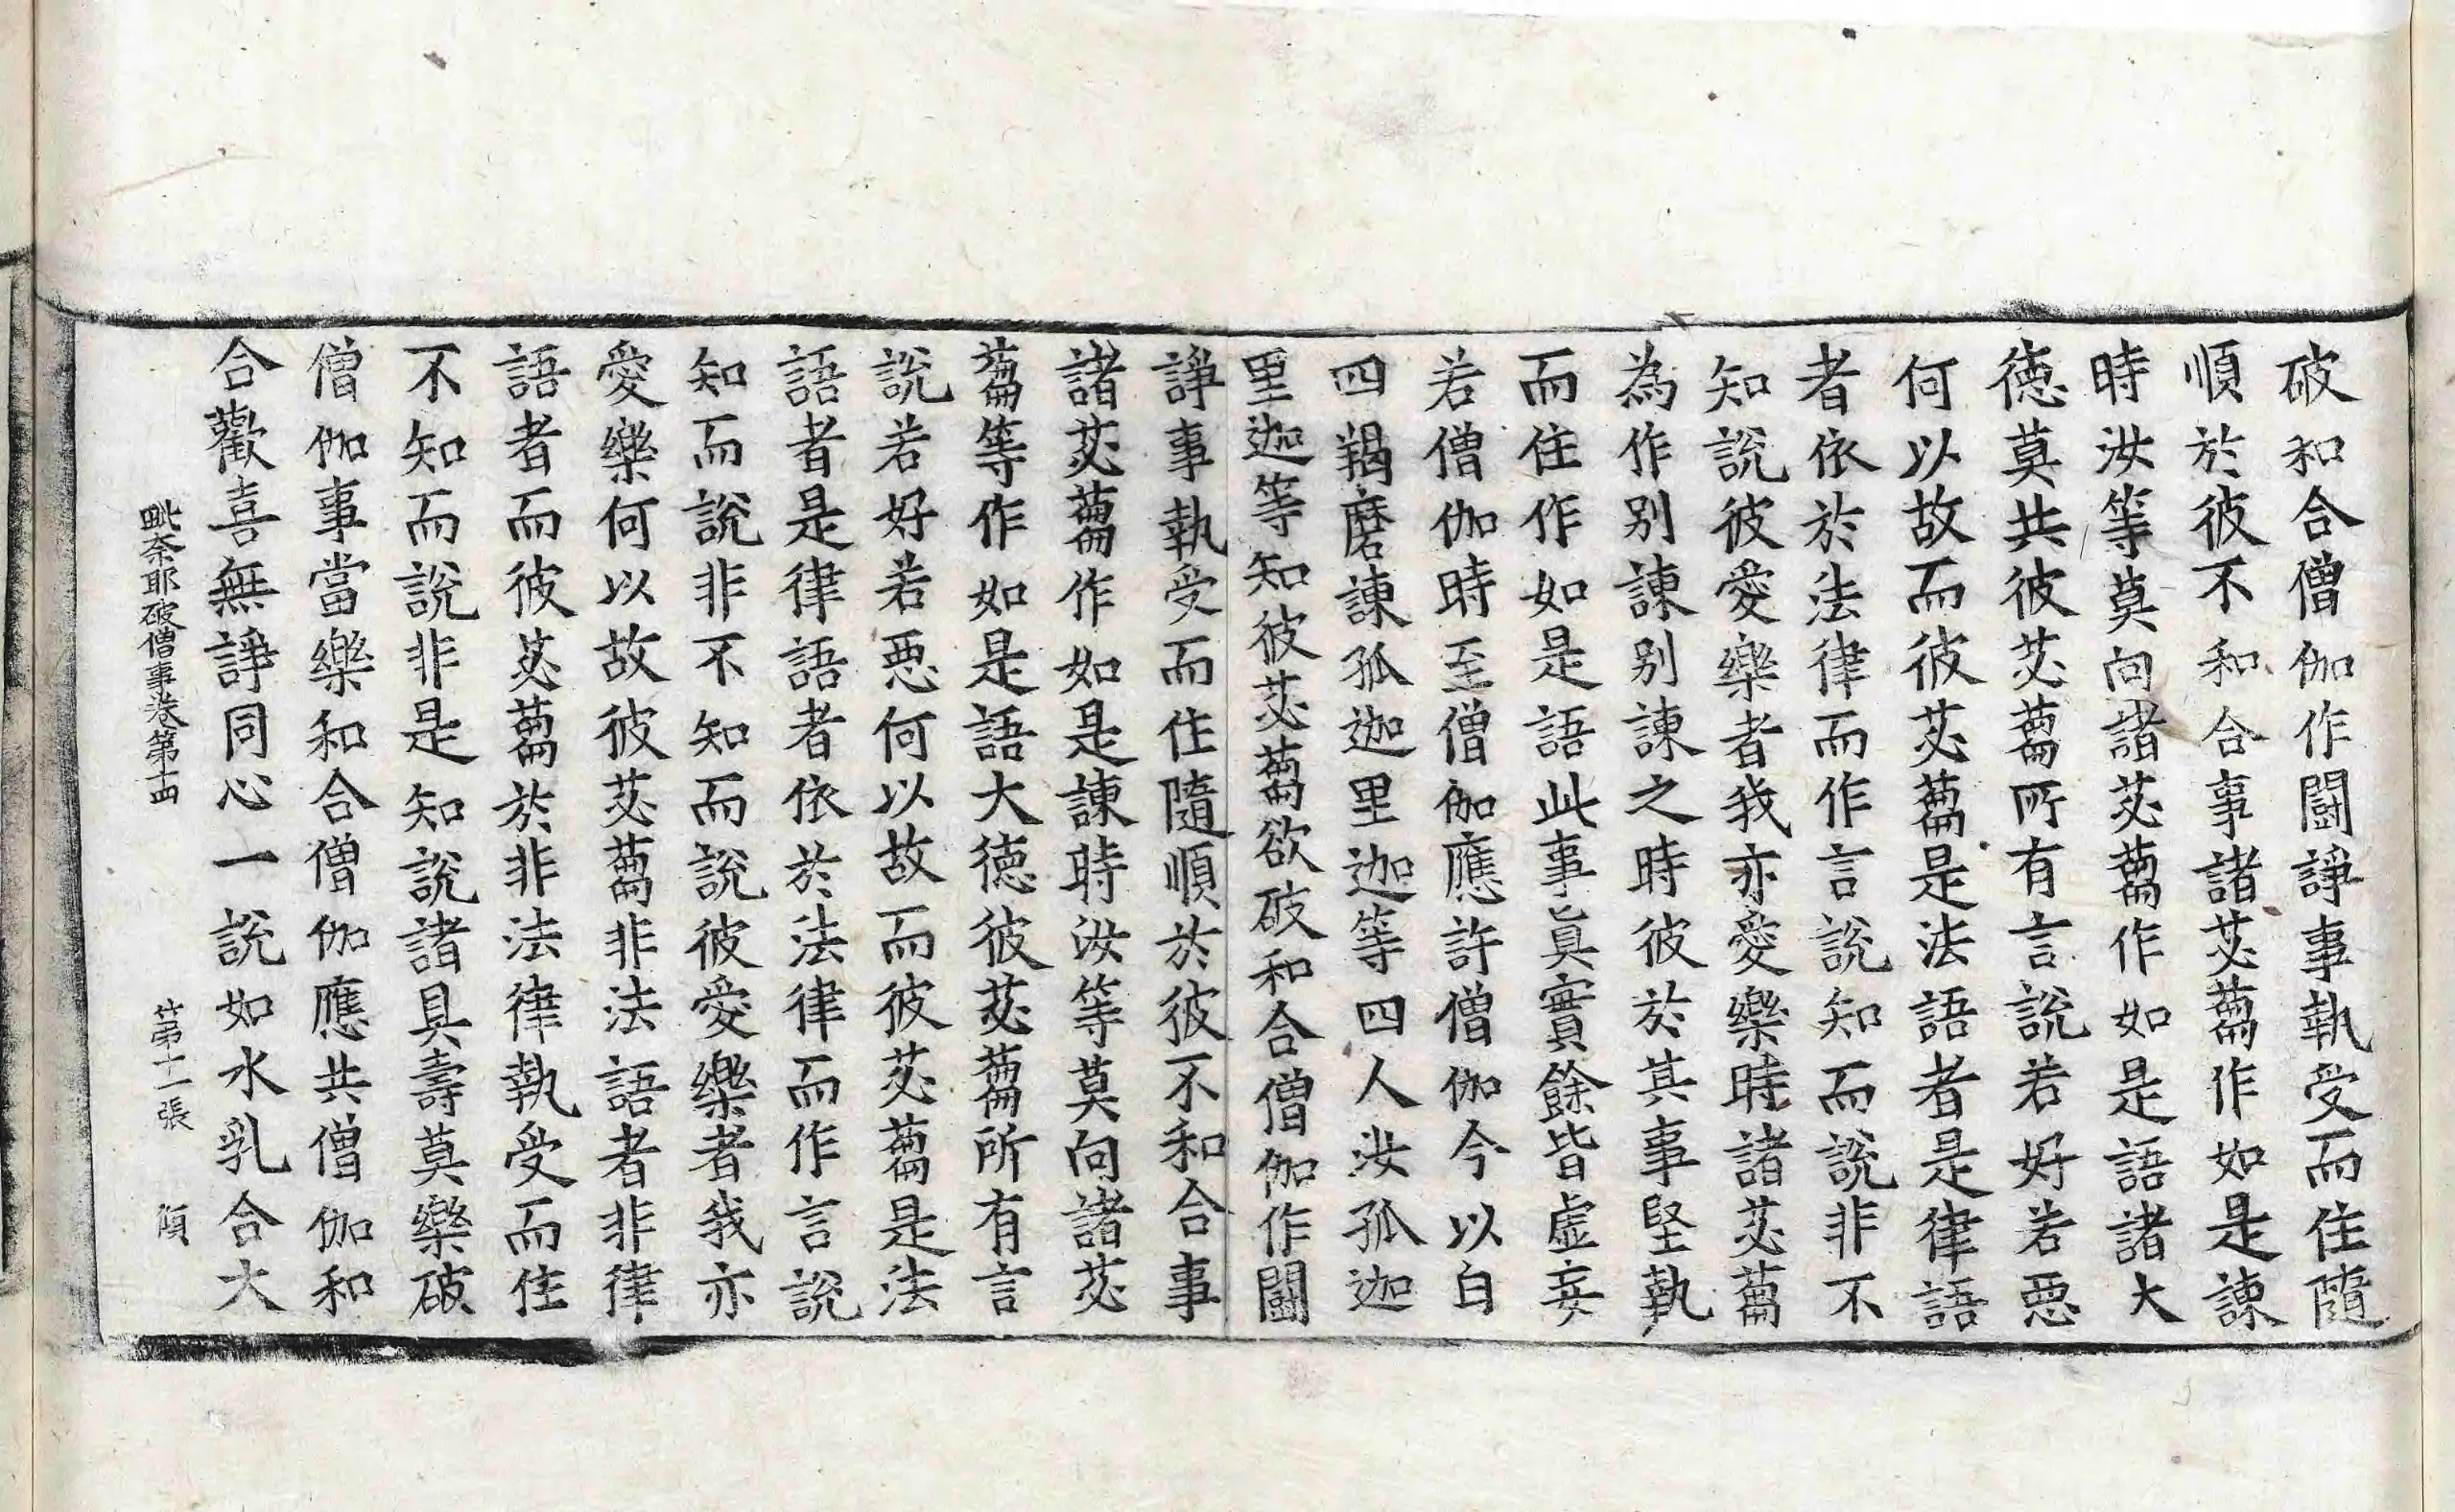 破和合僧伽作鬪諍事執受而住隨
順於彼不和合事諸苾蒭作如是諫
時汝等莫向諸苾蒭作如是語諸大
德莫共彼苾蒭所有言說若好若惡
何以故而彼苾蒭是法語者是律語
者依於法律而作言說知而說非不
知說彼愛樂者我亦愛樂時諸苾蒭
為作别諫别諫之時彼於其事堅執
而住作如是語此事眞實餘皆虛妄
若僧伽時至僧伽應許僧伽今以白
四羯磨諫孤迦里迦等四人汝孤迦
里迦等知彼苾蒭欲破和合僧伽作鬪
諍事執受而住隨順於彼不和合事
諸苾蒭作如是諫時汝等莫向諸苾
蒭等作如是語大德彼苾蒭所有言
說若好若惡何以故而彼苾蒭是法
語者是律語者依於法律而作言說
知而說非不知而說彼愛樂者我亦
愛樂何以故彼苾蒭非法語者非律
語者而彼苾蒭於非法律執受而住
不知而說非是知說諸具壽莫樂破
僧伽事當樂和合僧伽應共僧伽和
合歡喜無諍同心一說如水乳合大
毗奈耶破僧事卷第十四 第十一張